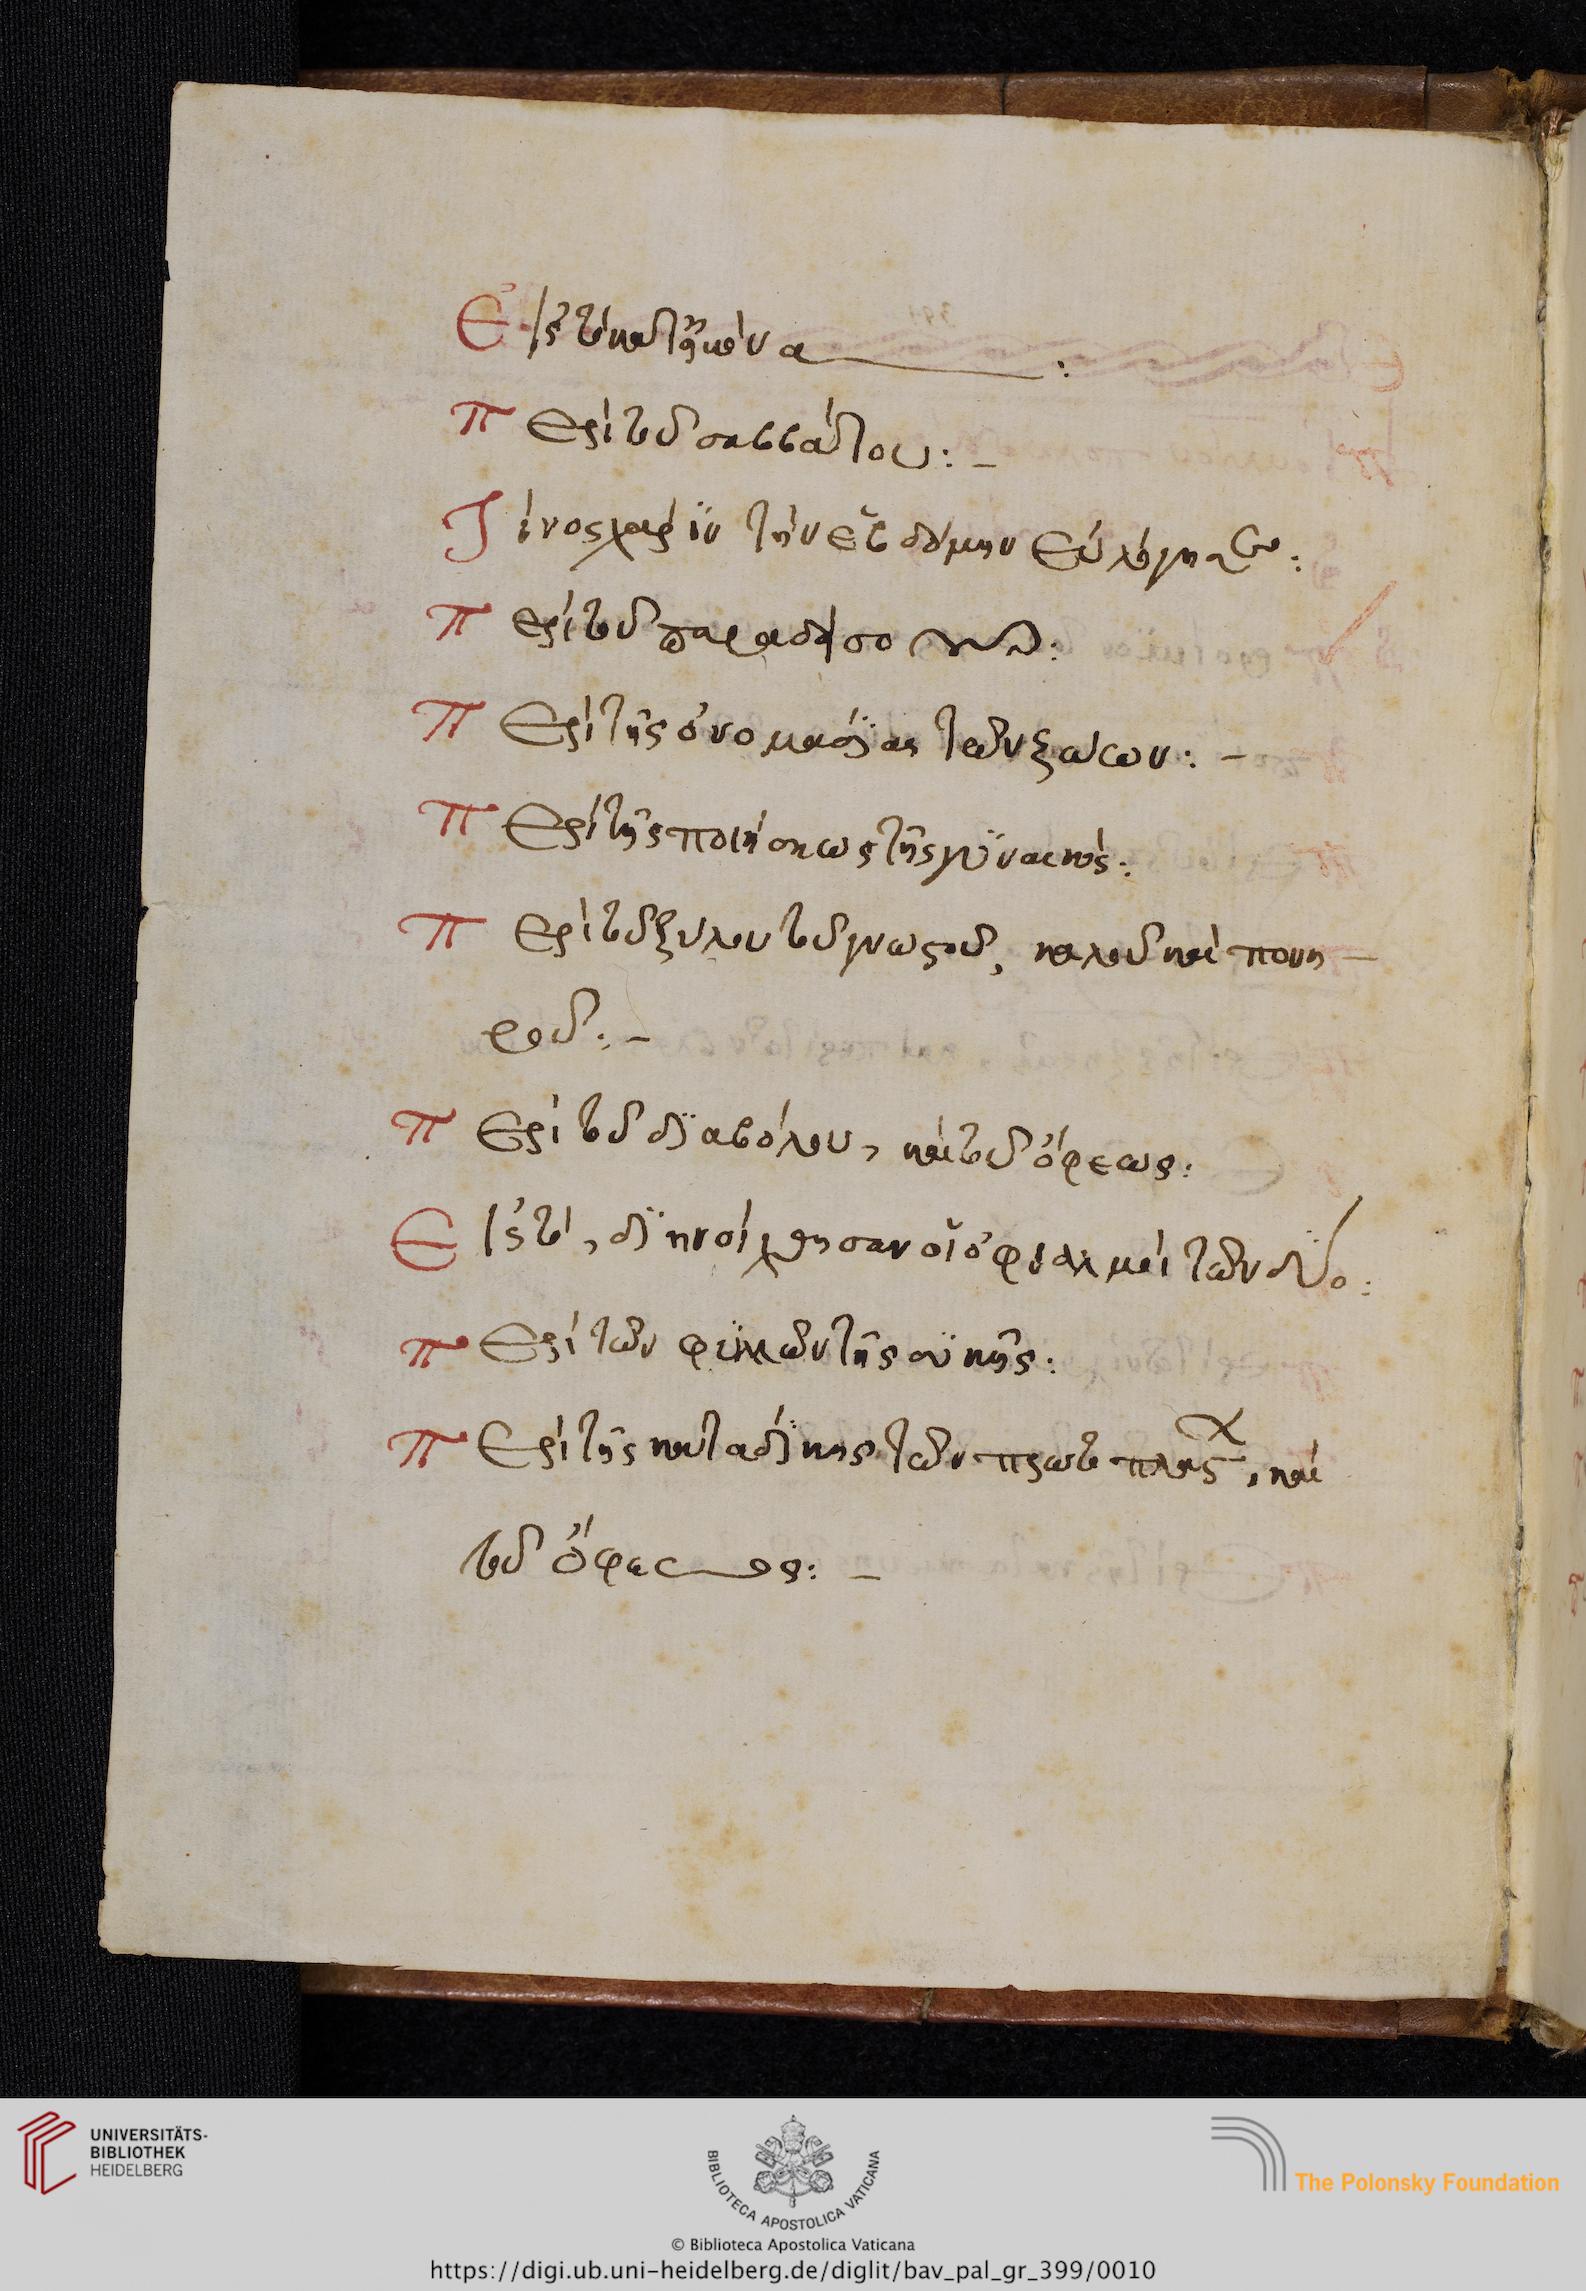 Εἰς τὸ κατ' εἰκόνα:
Περὶ τοῦ σαββάτου:–
Τίνος χάριν τὴν ἑβδόμην εὐλόγησεν:
Περὶ τοῦ παραδείσου:
Περὶ τῆς ὀνομασΐας τῶν ζώων:–
Περὶ τῆς ποιήσεως τῆς γϋναικός:
Περὶ τοῦ ξύλου τοῦ γνωστοῦ, καλοῦ καὶ πονη–
ροῦ:–
Περὶ τοῦ δϊαβόλου, καὶ τοῦ ὄφεως:
Εἰς τό, δϊηνοίχθησαν οἱ ὀφθαλμοὶ τῶν δύο:
Περὶ τῶν φύλλων τῆς συκῆς:
Περὶ τῆς καταδΐκης τῶν πρωτοπλάστ, καὶ
τοῦ ὄφεος:–
UNIVERSITÄTS-
BIBLIOTHEK
HEIDELBERG
BIBLIOTECA APOSTOLICA VATICANA
The Polonsky Foundation
© Biblioteca Apostolica Vaticana
https://digi.ub.uni-heidelberg.de/diglit/bav_pal_gr_399/0010